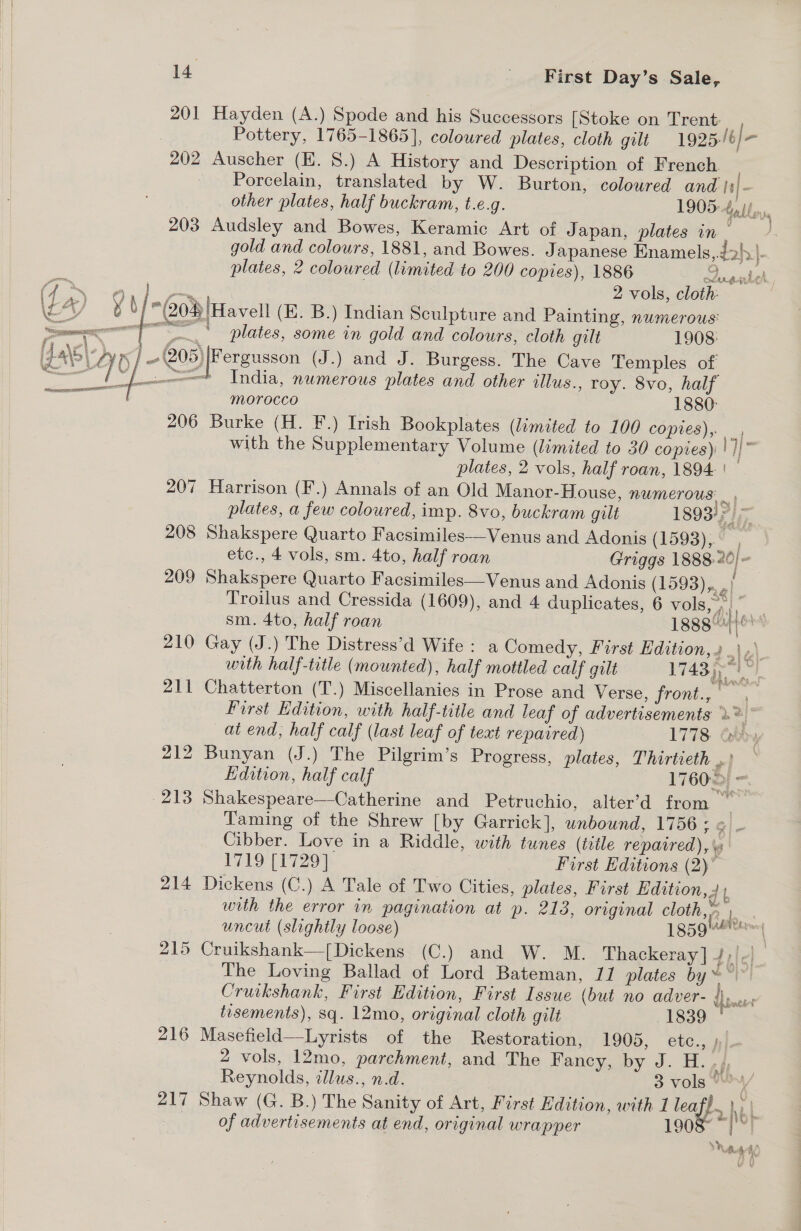 14 First Day’s Sale,
201 Hayden (A.) Spode and his Successors [Stoke on Trent
Pottery, 1765-1865], coloured plates, cloth gilt 1925
202 Auscher (E. S.) A History and Description of French
Porcelain, translated by W. Burton, coloured and
other plates, half buckram, t.e.g. 1905
203 Audsley and Bowes, Keramic Art of Japan, plates in
gold and colours, 1881, and Bowes. Japanese Enamels,
plates, 2 coloured (limited to 200 copies), 1886
2 vols, cloth
204 Havell (E. B.) Indian Sculpture and Painting, numerous
plates, some in gold and colours, cloth gilt 1908
205 Fergusson (J.) and J. Burgess. The Cave Temples of
India, numerous plates and other illus., roy. 8vo, half
morocco 1880
206 Burke (H. F.) Irish Bookplates (limited to 100 copies),
with the Supplementary Volume (limited to 30 copies)
plates, 2 vols, half roan, 1894
207 Harrison (F.) Annals of an Old Manor-House, numerous
plates, a few coloured, imp. 8vo, buckram gilt 1893
208 Shakspere Quarto Facsimiles—Venus and Adonis (1593),
etc., 4 vols, sm. 4to, half roan Griggs 1888
209 Shakspere Quarto Facsimiles—Venus and Adonis (1593),
Troilus and Cressida (1609), and 4 duplicates, 6 vols,
sm. 4to, half roan 1888
210 Gay (J.) The Distress’d Wife: a Comedy, First Edition,
with half-title (mounted), half mottled calf gilt 1743
211 Chatterton (T.) Miscellanies in Prose and Verse, front.,
First Edition, with half-title and leaf of advertisements
at end, half calf (last leaf of text repaired) 1778
212 Bunyan (J.) The Pilgrim’s Progress, plates, Thirtieth
Edition, half calf 1760
213 Shakespeare—Catherine and Petruchio, alter’d from
Taming of the Shrew [by Garrick], unbound, 1756;
Cibber. Love in a Riddle, with tunes (title repaired),
1719 [1729] First Editions (2)
214 Dickens (C.) A Tale of Two Cities, plates, First Edition,
with the error in pagination at p. 213, original cloth,
uncut (slightly loose) 1859
215 Cruikshank—[Dickens (C.) and W. M. Thackeray]
The Loving Ballad of Lord Bateman, 11 plates by
Cruikshank, First Edition, First Issue (but no adver-
tisements), sq. 12mo, original cloth gilt 1839
216 Masefield—Lyrists of the Restoration, 1905, etc.,
2 vols, 12mo, parchment, and The Fancy, by J. H.
Reynolds, illus., n.d. 3 vols
217 Shaw (G. B.) The Sanity of Art, First Edition, with 1 leaf
of advertisements at end, original wrapper 1908
Maggs